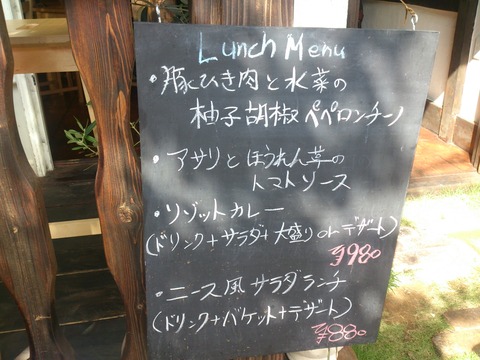 Lunch Menu
・豚ひき肉と水菜の
柚子胡椒ペペロンチーノ
・アサリとほうれん草の
トマトソース
・リゾットカレー
(ドリンク+サラダ+大盛りorデザート)
¥980
・ニース風サラダランチ
(ドリンク+バケット+デザート)
¥880